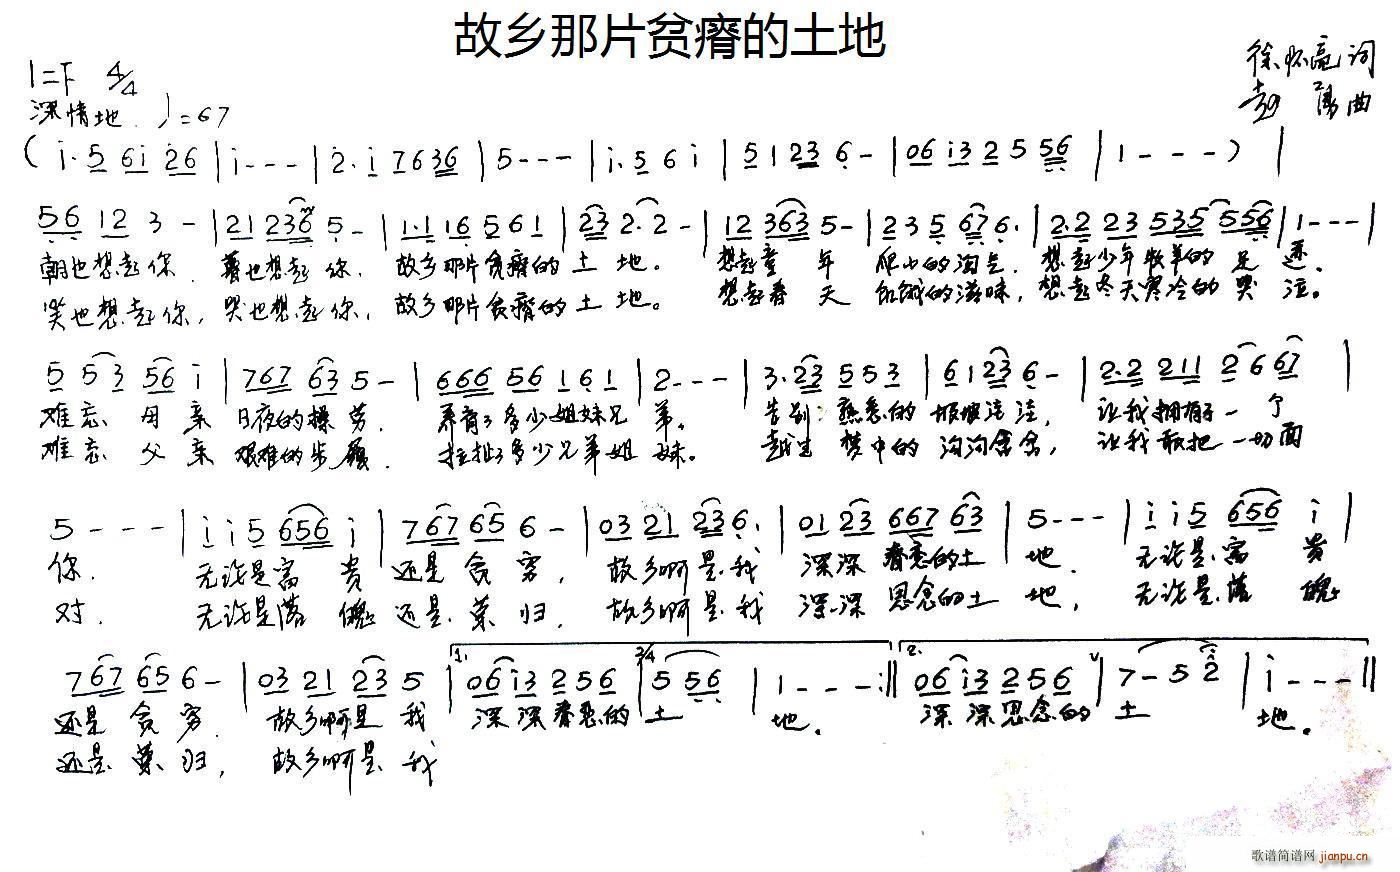 故乡那片贫瘠的土地
1=F 4/4
徐怀亮词
深情地 ♩=67
彭 勇曲
(i·5 6i 26 | i - - - | 2·i 7636 | 5 - - - | i·5 6 i | 51236 - | 06i32556 | 1 - - - ) |
5612 3 - | 212365 - | 1·116561 | 232·2 - | 123635 - | 235676· | 2·223535556 | 1 - - - |
朝也想起你 暮也想起你. 故乡那片贫瘠的土地。 想起童年 爬山的淘气. 想起少年牧羊的足迹.
笑也想起你, 哭也想起你, 故乡那片贫瘠的土地。 想起春天 饥饿的滋味, 想起冬天寒冷的哭泣。
5 5356i | 767635 - | 66656161 | 2 - - - | 3·23553 | 61236 - | 2·22112667 |
难忘 母亲 日夜的操劳. 养育了多少姐妹兄弟。 告别 熟悉的坡坡洼洼, 让我拥有了一个
难忘 父亲 艰难的步履. 拉扯了多少兄弟姐妹。 越过 梦中的沟沟岔岔, 让我敢把一切面
5 - - - | ii5656i | 767656 - | 0321236· | 012366763 | 5 - - - | ii5656i |
你. 无论是富贵 还是贫穷, 故乡啊是我 深深眷恋的土地. 无论是富贵
对. 无论是落魄 还是荣归, 故乡啊是我 深深思念的土地, 无论是落魄
767656 - | 0321235 | 1. 06i32556 | 2/4 5556 | 1 - - - :|| 2. 06i32556 | 7 - 52 | i - - - ||
还是贫穷. 故乡啊是我 深深眷恋的土地。 深深思念的土地。
还是荣归, 故乡啊是我
歌谱简谱网 jianpu.cn